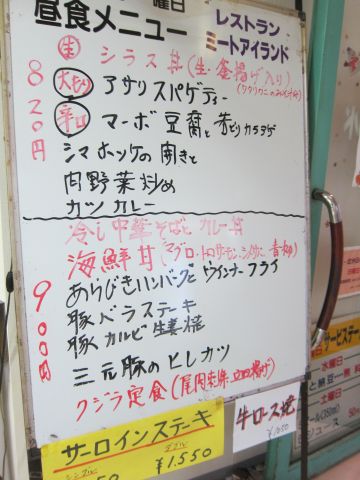 曜日
昼食メニュー
レストラン
ミートアイランド
820円
生 シラス丼(生・釜揚げ入り)
大もり アサリスパゲティー
辛口 マーボ豆腐と若どりカラアゲ
シマホッケの開きと
肉野菜炒め
カツカレー
900円
冷し中華そばとカレー丼
海鮮丼(マグロ・トロサーモン・
あらびきハンバーグとウインナーフライ
豚バラステーキ
豚カルビ生姜焼
三元豚のヒレカツ
クジラ定食(尾肉刺身、立田揚げ)
サーロインステーキ
シングル
ダブル
50
¥1.550
牛ロース焼
¥1050
サービスデー
水曜日
土曜日